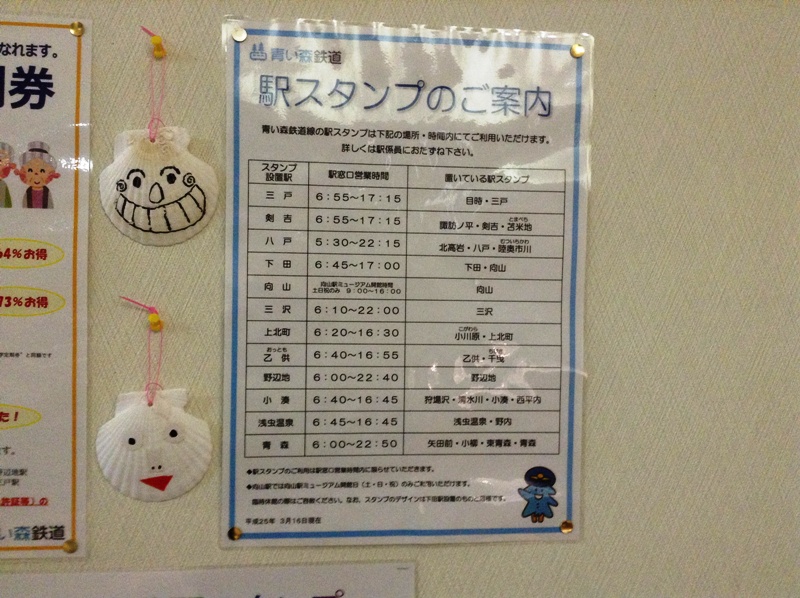 なれます。
割券
64%お得
73%お得
た！
す。
許証等）の
青い森鉄道
青い森鉄道
駅スタンプのご案内
青い森鉄道線の駅スタンプは下記の場所・時間内にてご利用いただけます。
詳しくは駅係員におたずね下さい。
スタンプ設置駅 駅窓口営業時間 置いている駅スタンプ
三戸 6：55～17：15 目時・三戸
剣吉 6：55～17：15 諏訪ノ平・剣吉・苫米地
とまべち
八戸 5：30～22：15 北高岩・八戸・陸奥市川
むついちかわ
下田 6：45～17：00 下田・向山
向山 向山駅ミュージアム開館時間 土日祝のみ 9：00～16：00 向山
三沢 6：10～22：00 三沢
上北町 6：20～16：30 小川原・上北町
こがわら
乙供 6：40～16：55 乙供・千曳
おっとも
野辺地 6：00～22：40 野辺地
小湊 6：40～16：45 狩場沢・清水川・小湊・西平内
浅虫温泉 6：45～16：45 浅虫温泉・野内
青森 6：00～22：50 矢田前・小柳・東青森・青森
◆駅スタンプのご利用は駅窓口営業時間内に限らせていただきます。
◆向山駅では向山駅ミュージアム開館日（土・日・祝）のみご利用いただけます。
臨時休館の際はご容赦ください。なお、スタンプのデザインは下田駅設置のものと同様です。
平成25年 3月16日現在